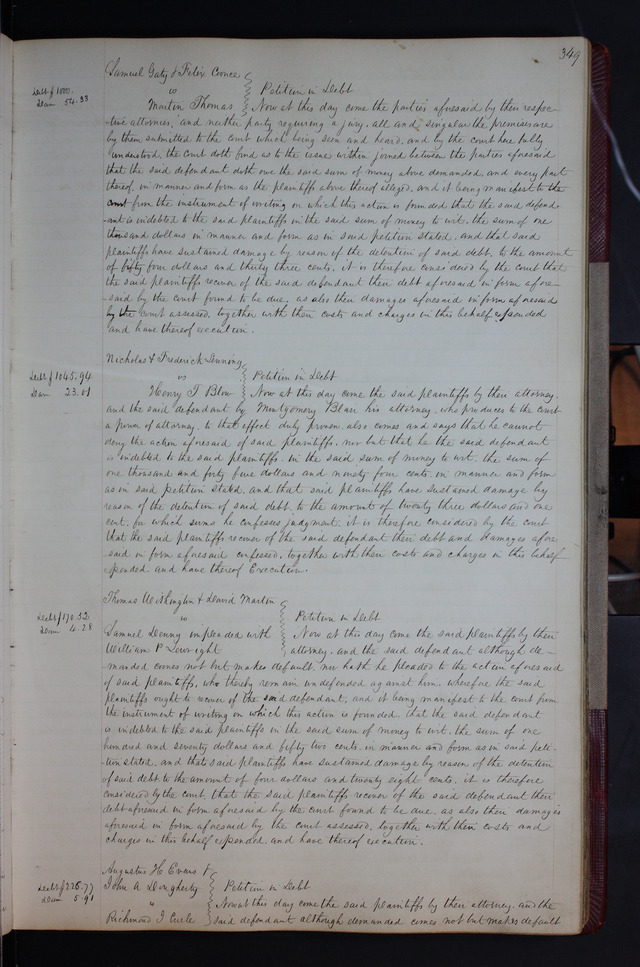 349
Samuel Gaty & Felix Coonce
Debt $ 1000.
vs
Petition in Debt
Dam 54.33
Martin Thomas
Now at this day come the parties aforesaid by their respec-
tive attornies, and neither party requiring a jury, all and singular the premises are
by them submitted to the court which being seen and heard, and by the court here fully
understood, the Court doth find as to the issue within joined between the parties aforesaid
that the said defendant doth owe the said sum of money above demanded, and every part
thereof, in manner and form as the plaintiffs above thereof alleged, and it being manifest to the
court from the instrument of writing on which this action is founded that the said defend-
ant is indebted to the said plaintiffs in the said sum of money to wit, the sum of one
thousand dollars in manner and form as in said petition stated, and that said
plaintiffs have sustained damage by reason of the detention of said debt, to the amount
of fifty four dollars and thirty three cents, it is therefore considered by the court that
the said plaintiffs recover of the said defendant their debt aforesaid in form afore-
said by the court found to be due, as also their damages aforesaid in form aforesaid
by the court assessed, together with their costs and charges in this behalf expended
and have thereof execution.
Nicholas & Frederick
Debt $ 1045.94
vs
Petition in Debt
Dam 23.01
Henry T Blow
Now at this day come the said plaintiffs by their attorney,
and the said defendant by Montgomery Blair his attorney, who produces to the court
a power of attorney, to that effect duly proven, also comes and says that he cannot
deny the action aforesaid of said plaintiffs, nor but that he the said defendant
is indebted to the said plaintiffs, in the said sum of money to wit, the sum of
one thousand and forty five dollars and ninety four cents in manner and form
as in said petition stated, and that said plaintiffs have sustained damage by
reason of the detention of said debt, to the amount of twenty three dollars and one
cent, for which sums he confesses judgment, it is therefore considered by the court
that the said plaintiffs recover of the said defendant their debt and damages afore
said in form aforesaid confessed, together with their costs and charges in this behalf
expended, and have thereof Execution.
Thomas Withington & David Martin
Debt $ 170.52
vs
Petition in Debt
Dam 4.28
Samuel Denny impleaded with
Now at this day come the said plaintiffs by their
William P
attorney, and the said defendant although de-
manded comes not but makes default, nor hath he pleaded to the action aforesaid
of said plaintiffs, who thereby remain undefended against him, wherefore the said
plaintiffs ought to recover of the said defendant, and it being manifest to the court from
the instrument of writing on which this action is founded, that the said defendant
is indebted to the said plaintiffs in the said sum of money to wit, the sum of one
hundred and seventy dollars and fifty two cents, in manner and form as in said peti-
tion stated, and that said plaintiffs have sustained damage by reason of the detention
of said debt to the amount of four dollars and twenty eight cents, it is therefore
considered by the court, that the said plaintiffs recover of the said defendant their
debt aforesaid in form aforesaid by the court found to be due, as also their damages
aforesaid in form aforesaid by the court assessed, together with their costs and
charges in this behalf expended, and have thereof execution.
Augustus H Evans &
Debt $ 226.77
John A Dougherty
Petition in Debt
Dam 5.91
"
Now at this day come the said plaintiffs by their attorney, and the
Richmond J Curle
said defendant although demanded comes not but makes default